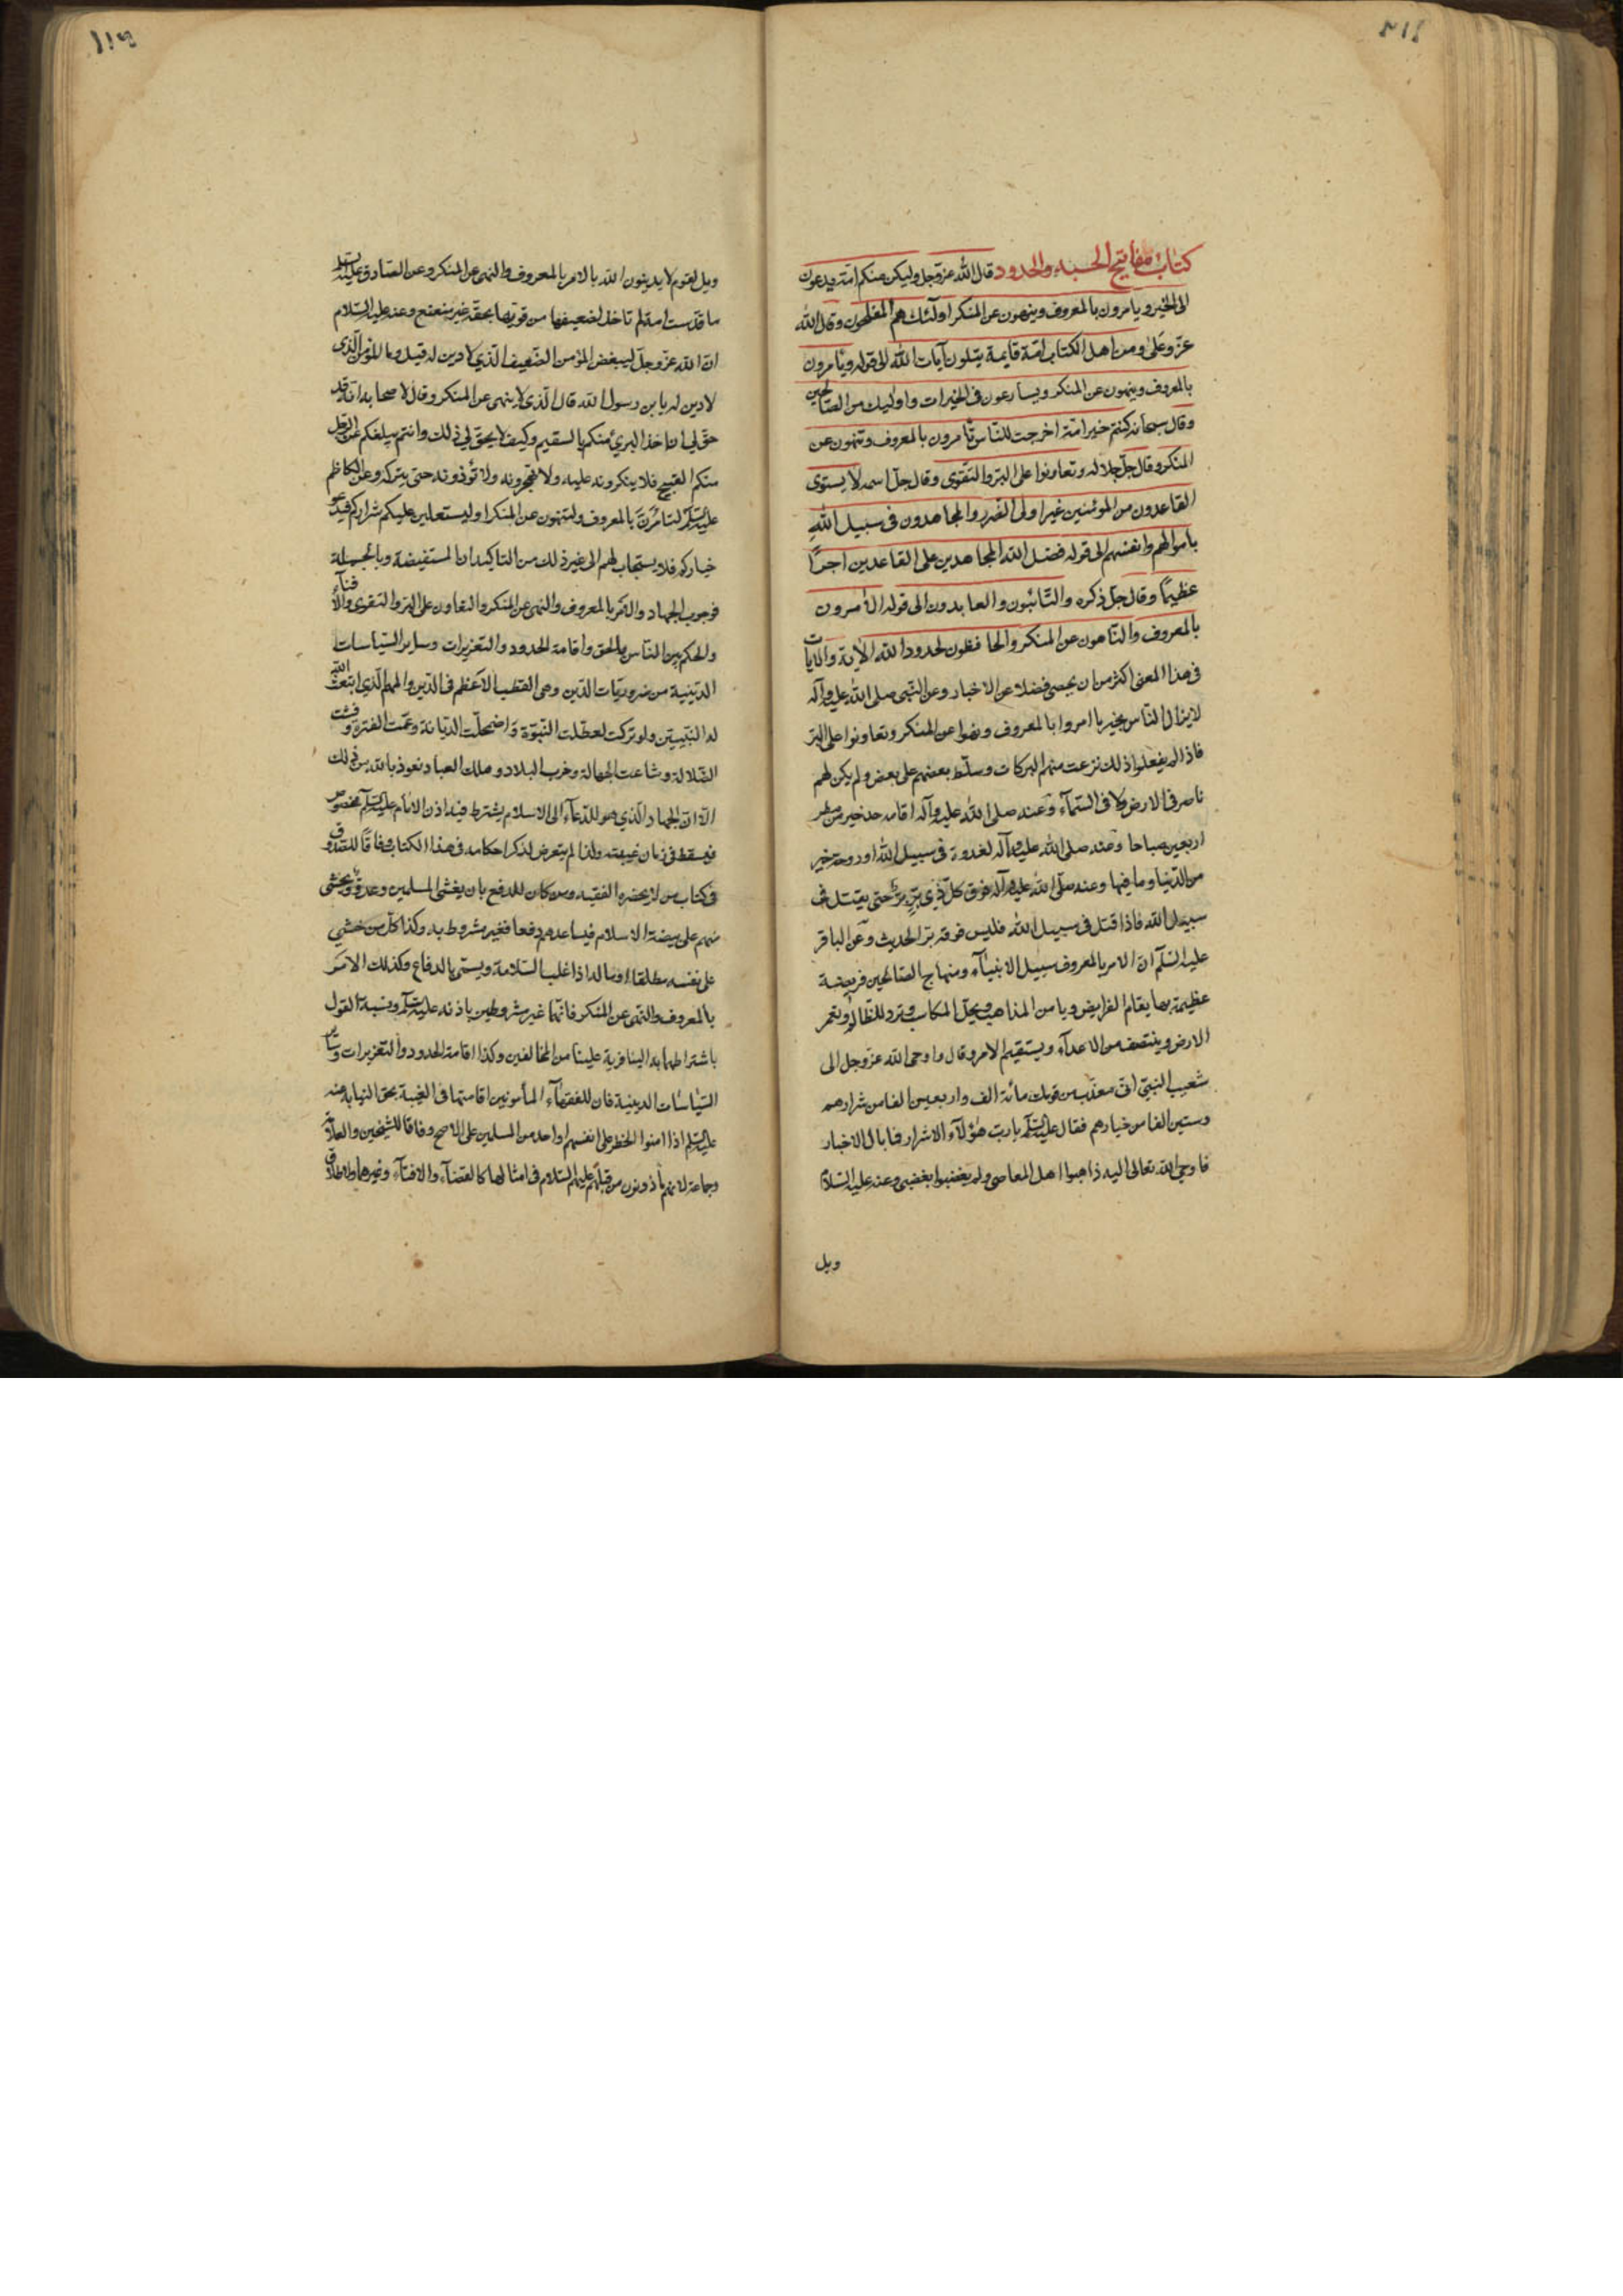 كتاب مفاتيح الحسبة والحدود قال الله عز وجل وليكن منكم امة يدعون
الى الخير ويامرون بالمعروف وينهون عن المنكر اولئك هم المفلحون وقال الله
عز وعلى ومن اهل الكتاب امة قايمة يتلون آيات الله الى قوله ويأمرون
بالمعروف وينهون عن المنكر ويسارعون فى الخيرات واوليك من الصالحين
وقال سبحانه كنتم خير امة اخرجت للناس تأمرون بالمعروف وتنهون عن
المنكر وقال جل جلاله وتعاونوا على البر والتقوى وقال جل اسمه لا يستوى
القاعدون من المؤمنين غير اولى الضرر والمجاهدون فى سبيل الله
باموالهم وانفسهم الى قوله فضل الله المجاهدين على القاعدين اجرًا
عظيمًا وقال جل ذكره والتائبون والعابدون الى قوله الآمرون
بالمعروف والناهون عن المنكر والحافظون لحدود الله الآية والآيات
فى هذا المعنى اكثر من ان يحصى فضلا عن الاخبار وعن النبى صلى الله عليه وآله
لا يزال الناس بخير ما امروا بالمعروف ونهوا عن المنكر وتعاونوا على البر
فاذا لم يفعلوا ذلك نزعت منهم البركات وسلط بعضهم على بعض ولم يكن لهم
ناصر فى الارض ولا فى السمآء وعنه صلى الله عليه وآله اقامة حد خير من مطر
اربعين صباحا وعنه صلى الله عليه وآله لغدوة فى سبيل الله او روحة خير
من الدنيا وما فيها وعنه صلى الله عليه وآله فوق كل ذى بر بر حتى يقتل فى
سبيل الله فاذا قتل فى سبيل الله فليس فوقه بر الحديث وعن الباقر
عليه السلم ان الامر بالمعروف سبيل الانبيآء ومنهاج الصالحين فريضة
عظيمة بها يقام الفرايض ويامن المذاهب ويحل المكاسب وترد المظالم ويعمر
الارض وينتصف من الاعدآء ويستقيم الامر وقال اوحى الله عز وجل الى
شعيب النبى انى معذب من قومك مائة الف واربعين الفا من شرارهم
وستين الفا من خيارهم فقال عليه السلم يارب هؤلآء الاشرار فما بال الاخيار
فاوحى الله تعالى اليه داهنوا اهل المعاصى ولم يغضبوا بغضبى وعنه عليه السلام
ويل
ويل لقوم لا يدينون الله بالامر بالمعروف والنهى عن المنكر وعن الصادق عليه السلم
ما قدست امة لم تاخذ لضعيفها من قويها بحقه غير متعتع وعنه عليه السلام
ان الله عز وجل ليبغض المؤمن الضعيف الذى لا دين له قيل وما المؤمن الذى
لا دين له يا بن رسول الله قال الذى لا ينهى عن المنكر وقال لاصحابه انه قد
حق لى ان اخذ البرئ منكم بالسقيم وكيف لا يحق لى ذلك وانتم يبلغكم عن الرجل
منكم القبيح فلا ينكرونه عليه ولا تهجرونه ولا تؤذونه حتى يتركه وعن الكاظم
عليه السلم لتامرن بالمعروف ولتنهون عن المنكر او ليستعملن عليكم شراركم فيدعو
خياركم فلا يستجاب لهم الى غير ذلك من التاكيدات المستفيضة وبالجملة
فوجوب الجهاد والامر بالمعروف والنهى عن المنكر والتعاون على البر والتقوى والافتآء
والحكم بين الناس بالحق واقامة الحدود والتعزيرات وساير السياسات
الدينية من ضروريات الدين وهى القطب الاعظم فى الدين والمهم الذى ابتعث الله
له النبيين ولو تركت لعطلت النبوة واضمحلت الديانة وعمت الفترة وفشت
الضلالة وشاعت الجهالة وخرب البلاد وهلك العباد نعوذ بالله من ذلك
الا ان الجهاد الذى هو للدعآء الى الاسلام يشترط فيه اذن الامام عليه السلم بخصوصه
فيسقط فى زمان غيبته ولذا لم يتعرض لذكر احكامه فى هذا الكتاب وفاقًا للصدوق
فى كتاب من لا يحضره الفقيه ومن كان للدفع بان يغشى المسلمين عدو ويخشى
منهم على بيضة الاسلام فيساعدهم دفعا فغير مشروط به وكذا كل من خشى
على نفسه مطلقا او ماله اذا غلب السلامة ويسمى بالدفاع وكذلك الامر
بالمعروف والنهى عن المنكر فانهما غير مشروطين باذنه عليه السلم ونسبة القول
باشتراطهما به الينا فرية علينا من المخالفين وكذا اقامة الحدود والتعزيرات وساير
السياسات الدينية فان للفقهآء المأمونين اقامتها فى الغيبة بحق النيابة عنه
عليه السلم اذا امنوا الخطر على انفسهم او احد من المسلمين على الاصح وفاقا للشيخين والعلامة
وجماعة لانهم مأذونون من قبلهم عليهم السلام فى امثالها كالقضآء والافتآء وغيرهما ولاطلاق